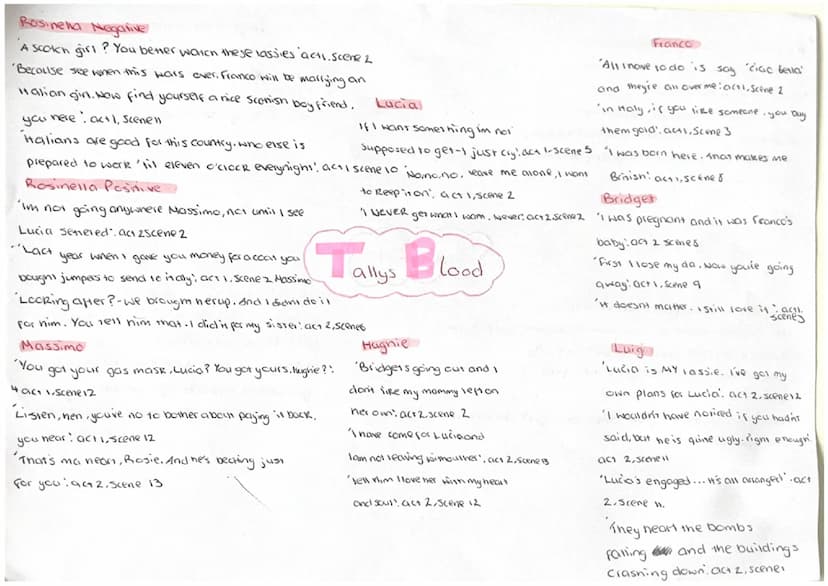 Rosinella Negative
'A scotch girl? You better watch these lassies' act 1, scene 2
'Because see when this wars over. Franco will be marrying an
Italian girl. Now find yourself a nice Scottish boyfriend.
you here'. act 1, scene 11
'Italians are good for this country. who else is
prepared to work 'til eleven o'clock everynight'. act 1 scene 10
Rosinella Positive
'Im not going anywhere Massimo, not until I see
Lucia settered'. act 2 scene 2
'Last year when I gave you money for a coat you
bought jumpers to send to italy'. act 1, scene 2 Massimo
'Looking after? - we brought her up. And I didnt do it
for him. You tell him that. I did it for my sister'. act 2, scene 6
Massimo
'You got your gas mask, Lucia? You got yours, Hughie?':
act 1, scene 12
'Listen, hen, you're no to bother about paying it back.
you hear'. act 1, scene 12
'That's ma heart, Rosie. And he's beating just
for you'. act 2, scene 13
Lucia
If I want something im not
supposed to get - I just cry'. act 1, scene 5
'No, no, no. leave me alone, I want
to keep it on'. act 1, scene 2
'I NEVER get what I want. Never'. act 2 scene 2
Tallys Blood
Hughie
'Bridgets going out and I
dont like my mammy left on
her own'. act 2, scene 2
'I have come for Lucia and
I am not leaving without her'. act 2, scene 13
'tell him I love her with my heart
and soul'. act 2, scene 12
Franco
'All I have to do is say 'Ciao bella'
and they're all over me'. act 1, scene 2
'in Italy, if you like someone, you buy
them gold'. act 1, scene 3
'I was born here. that makes me
British'. act 1, scene 8
Bridget
'I was pregnant and it was Franco's
baby'. act 2 scene 8
'First I lose my da, now you're going
away'. act 1, scene 9
'It doesnt matter. I still love it'. act 1,
scene 3
Luigi
'Lucia is MY lassie. I've got my
own plans for Lucia'. act 2, scene 12
'I wouldn't have noticed if you hadnt
said, but he is quite ugly. right enough'.
act 2, scene 11
'Lucia's engaged... It's all arranged'. act
2, scene 11.
'They heart the bombs
falling and the buildings
crashing down'. act 2, scene 1